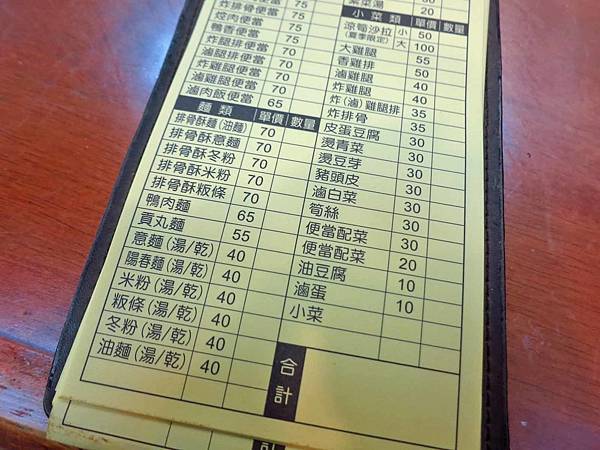 炸排骨便當 75
焢肉便當 75
鴨香便當 75
炸腿排便當 70
滷腿排便當 70
炸雞腿便當 70
滷雞腿便當 70
滷肉飯便當 65
麵類 單價 數量
排骨酥麵(油麵) 70
排骨酥意麵 70
排骨酥冬粉 70
排骨酥米粉 70
排骨酥粄條 70
鴨肉麵 65
貢丸麵 55
意麵(湯/乾) 40
陽春麵(湯/乾) 40
米粉(湯/乾) 40
粄條(湯/乾) 40
冬粉(湯/乾) 40
油麵(湯/乾) 40
紫菜湯
20
小菜類 單價 數量
涼筍沙拉 小 50
(夏季限定) 大 100
大雞腿 55
香雞排 50
滷雞腿 40
炸雞腿 40
炸(滷)雞腿排 35
炸排骨 35
皮蛋豆腐 30
燙青菜 30
燙豆芽 30
豬頭皮 30
滷白菜 30
筍絲 30
便當配菜 30
便當配菜 20
油豆腐 10
滷蛋 10
小菜
合計
計